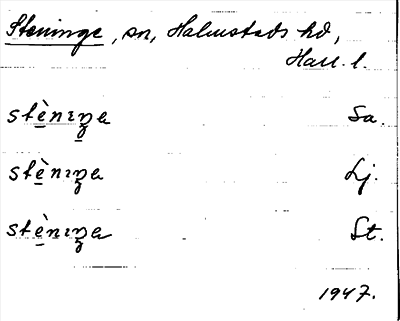 Steninge, sn, Halmstads hd,
Hall. l.
stè̱nɪŋ̱a Sa.
stè̱nɪŋa Lj.
stè̱nɪŋa St.
1947.